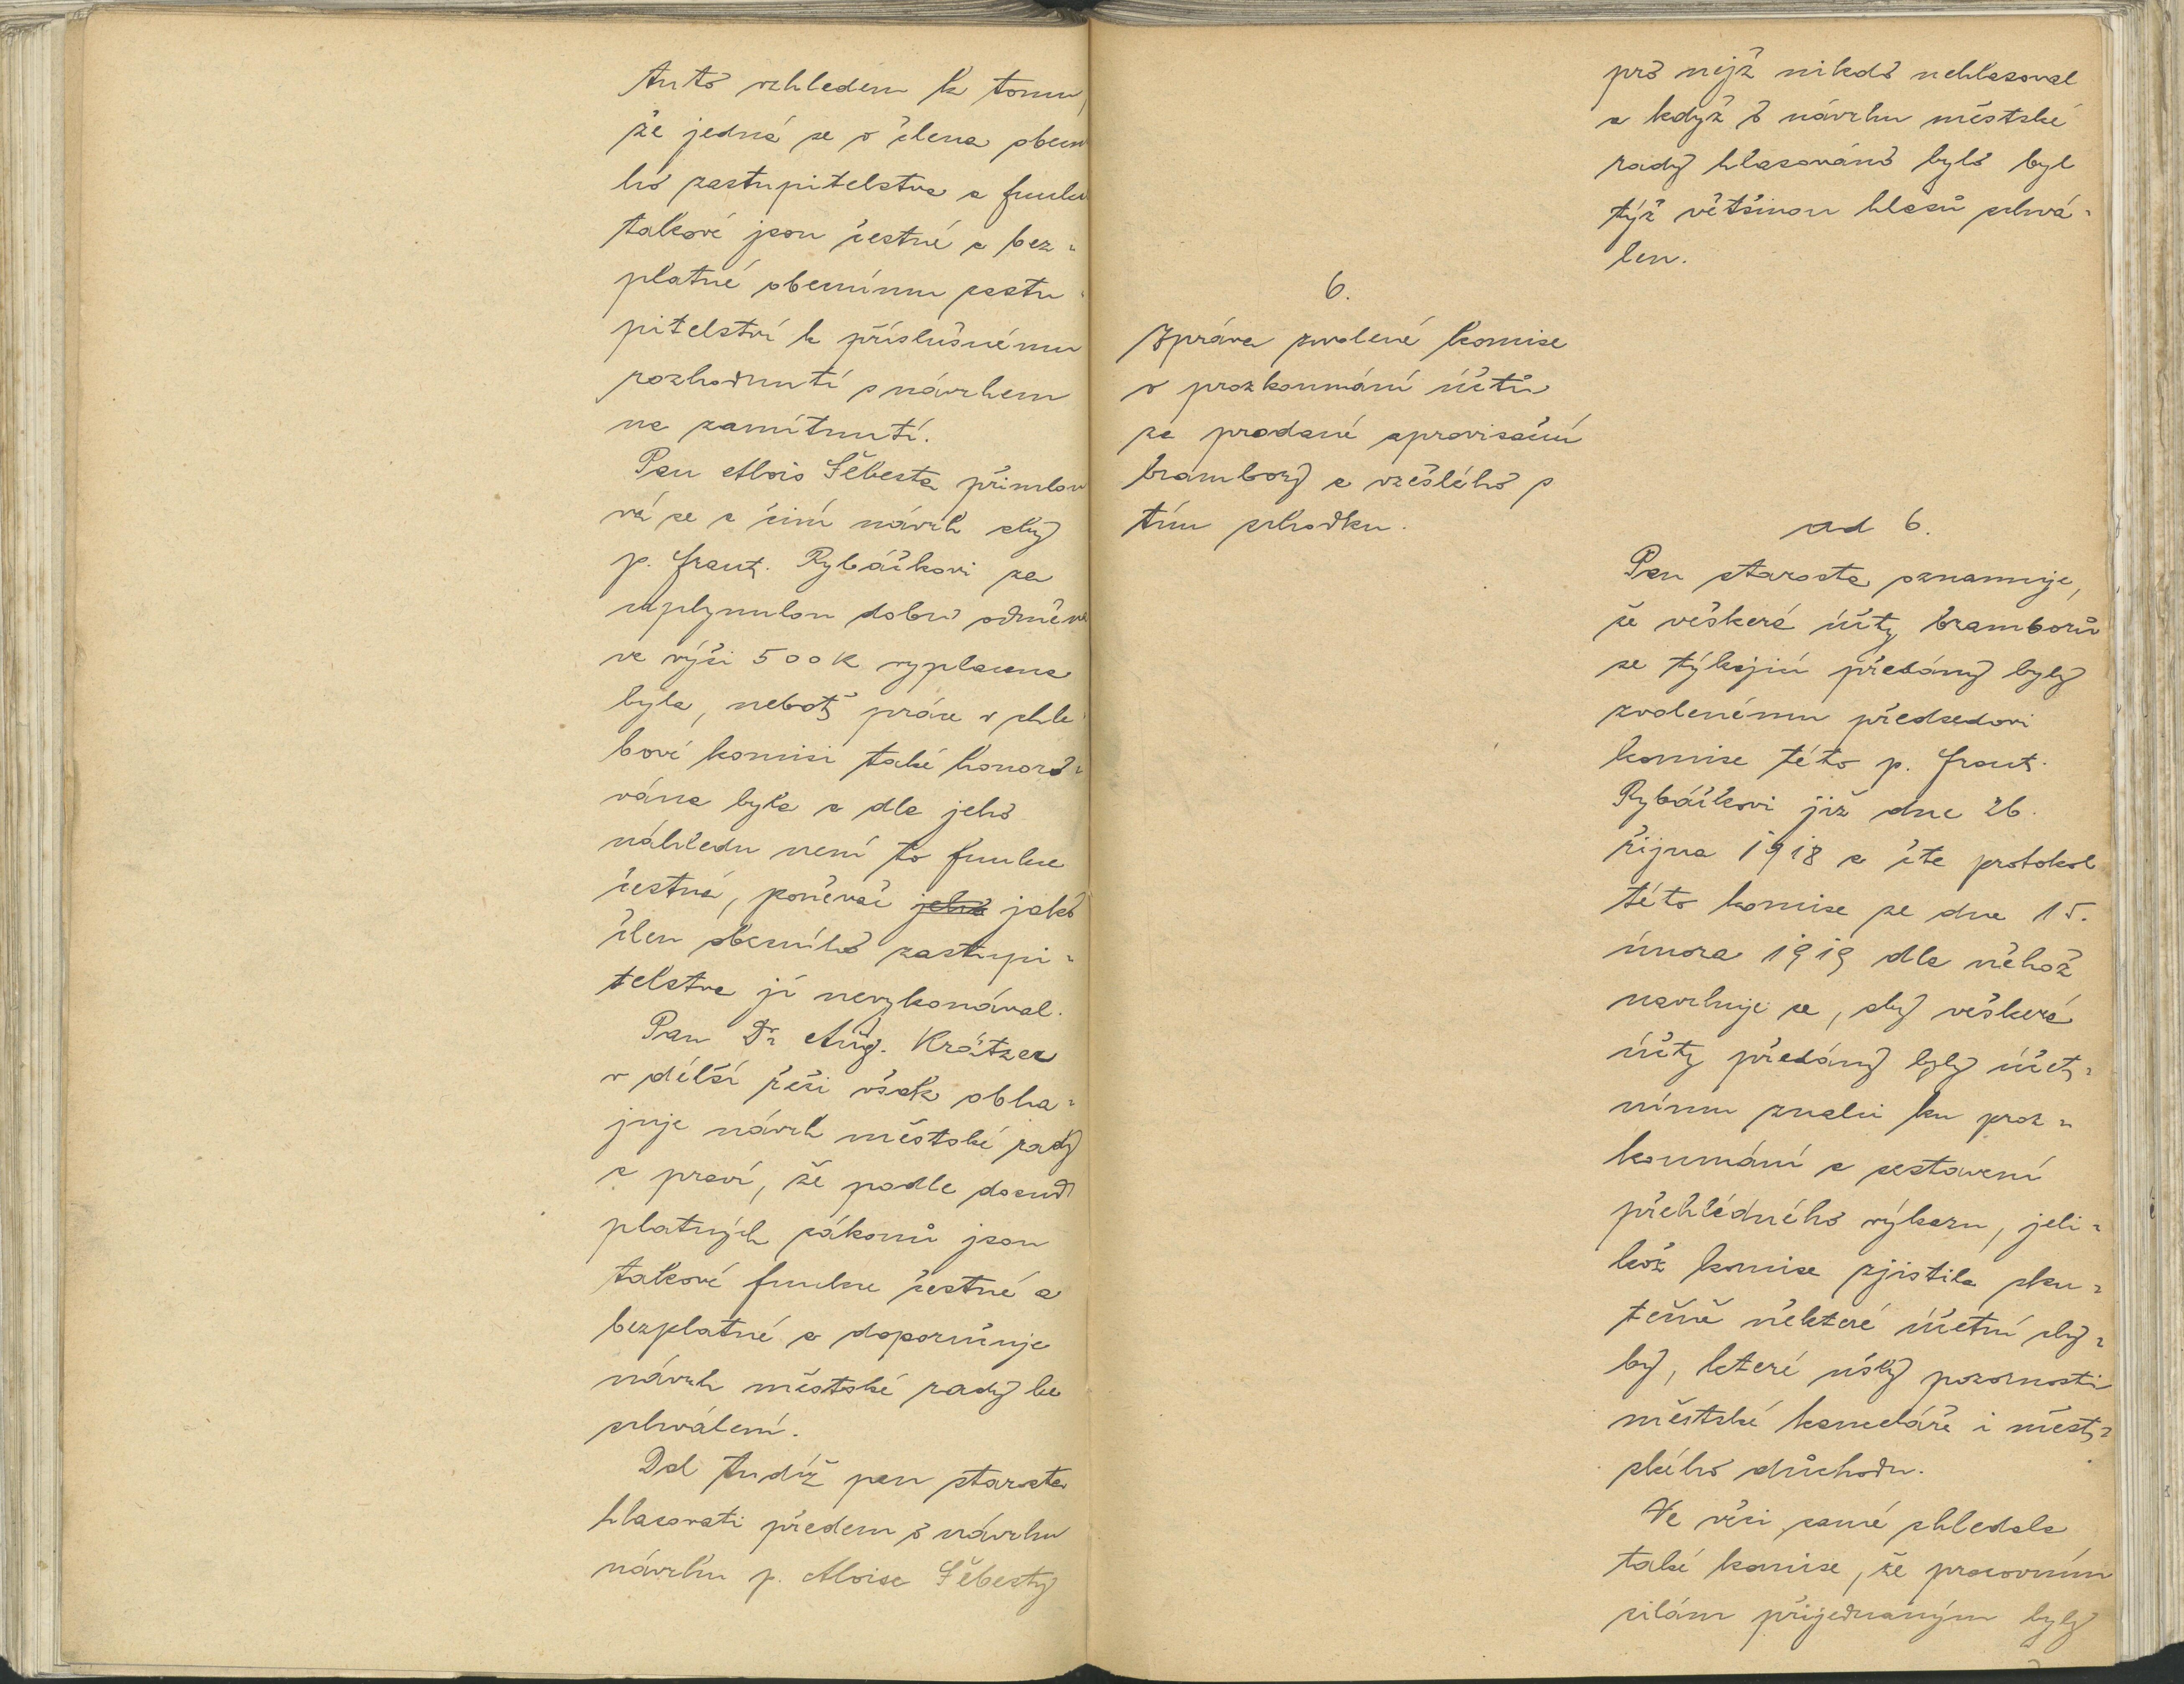 tuto vzhledem k tomu,
že jedná se o člena obecn
ho zastupitelstva a funkc
takové jsou čestné a bez-
platné obecnímu zastu-
pitelství k příslušnému
rozhodnutí s návrhem
na zamítnutí.
Pan Alois Šebesta přimlou
vá se a činí návrh aby
p. Frant. Rybáčkovi za
uplynulou dobu odměna
ve výši 500 K vyplacena
byla, neboť práce v chle-
bové komisi také honoro-
vána byla a dle jeho
náhledu není to funkce
čestná, poněvač jeho jako
člen obecního zastupi-
telstva ji nevykonával.
Pan Dr. Aug. Krátzer
v delší řeči však obha-
juje návrh městské rady
a praví, že podle dosud
platných zákonů jsou
takové funkce čestné a
bezplatné a doporučuje
návrh městské rady ke
schválení.
Dal tudíž pan starosta
hlasovati předem o návrhu
návrhu p. Aloise Šebesty
pro nějž nikdo nehlasoval
a když o návrhu městské
rady hlasováno bylo byl
týž většinou hlasů schvá-
len.
6.
Zpráva zvolené komise
o prozkoumání účtů
za prodané aprovisační
brambory a vzešlého s
tím schodku.
ad 6.
Pan starosta oznamuje,
že veškeré účty bramborů
se týkající předány byly
zvolenému předsedovi
komise této p. Frant.
Rybáčkovi již dne 26.
října 1918 a čte protokol
této komise ze dne 15.
února 1919 dle něhož
navrhuje se, aby veškeré
účty předány byly účet-
nímu znalci ku proz-
koumání a sestavení
přehledného výkazu, jeli-
kož komise zjistila sku-
tečně některé účetní chy-
by, které ušly pozornosti
městské kanceláře i měst-
ského důchodu.
Ve věci samé shledala
také komise, že pracovním
silám přijednaným byly